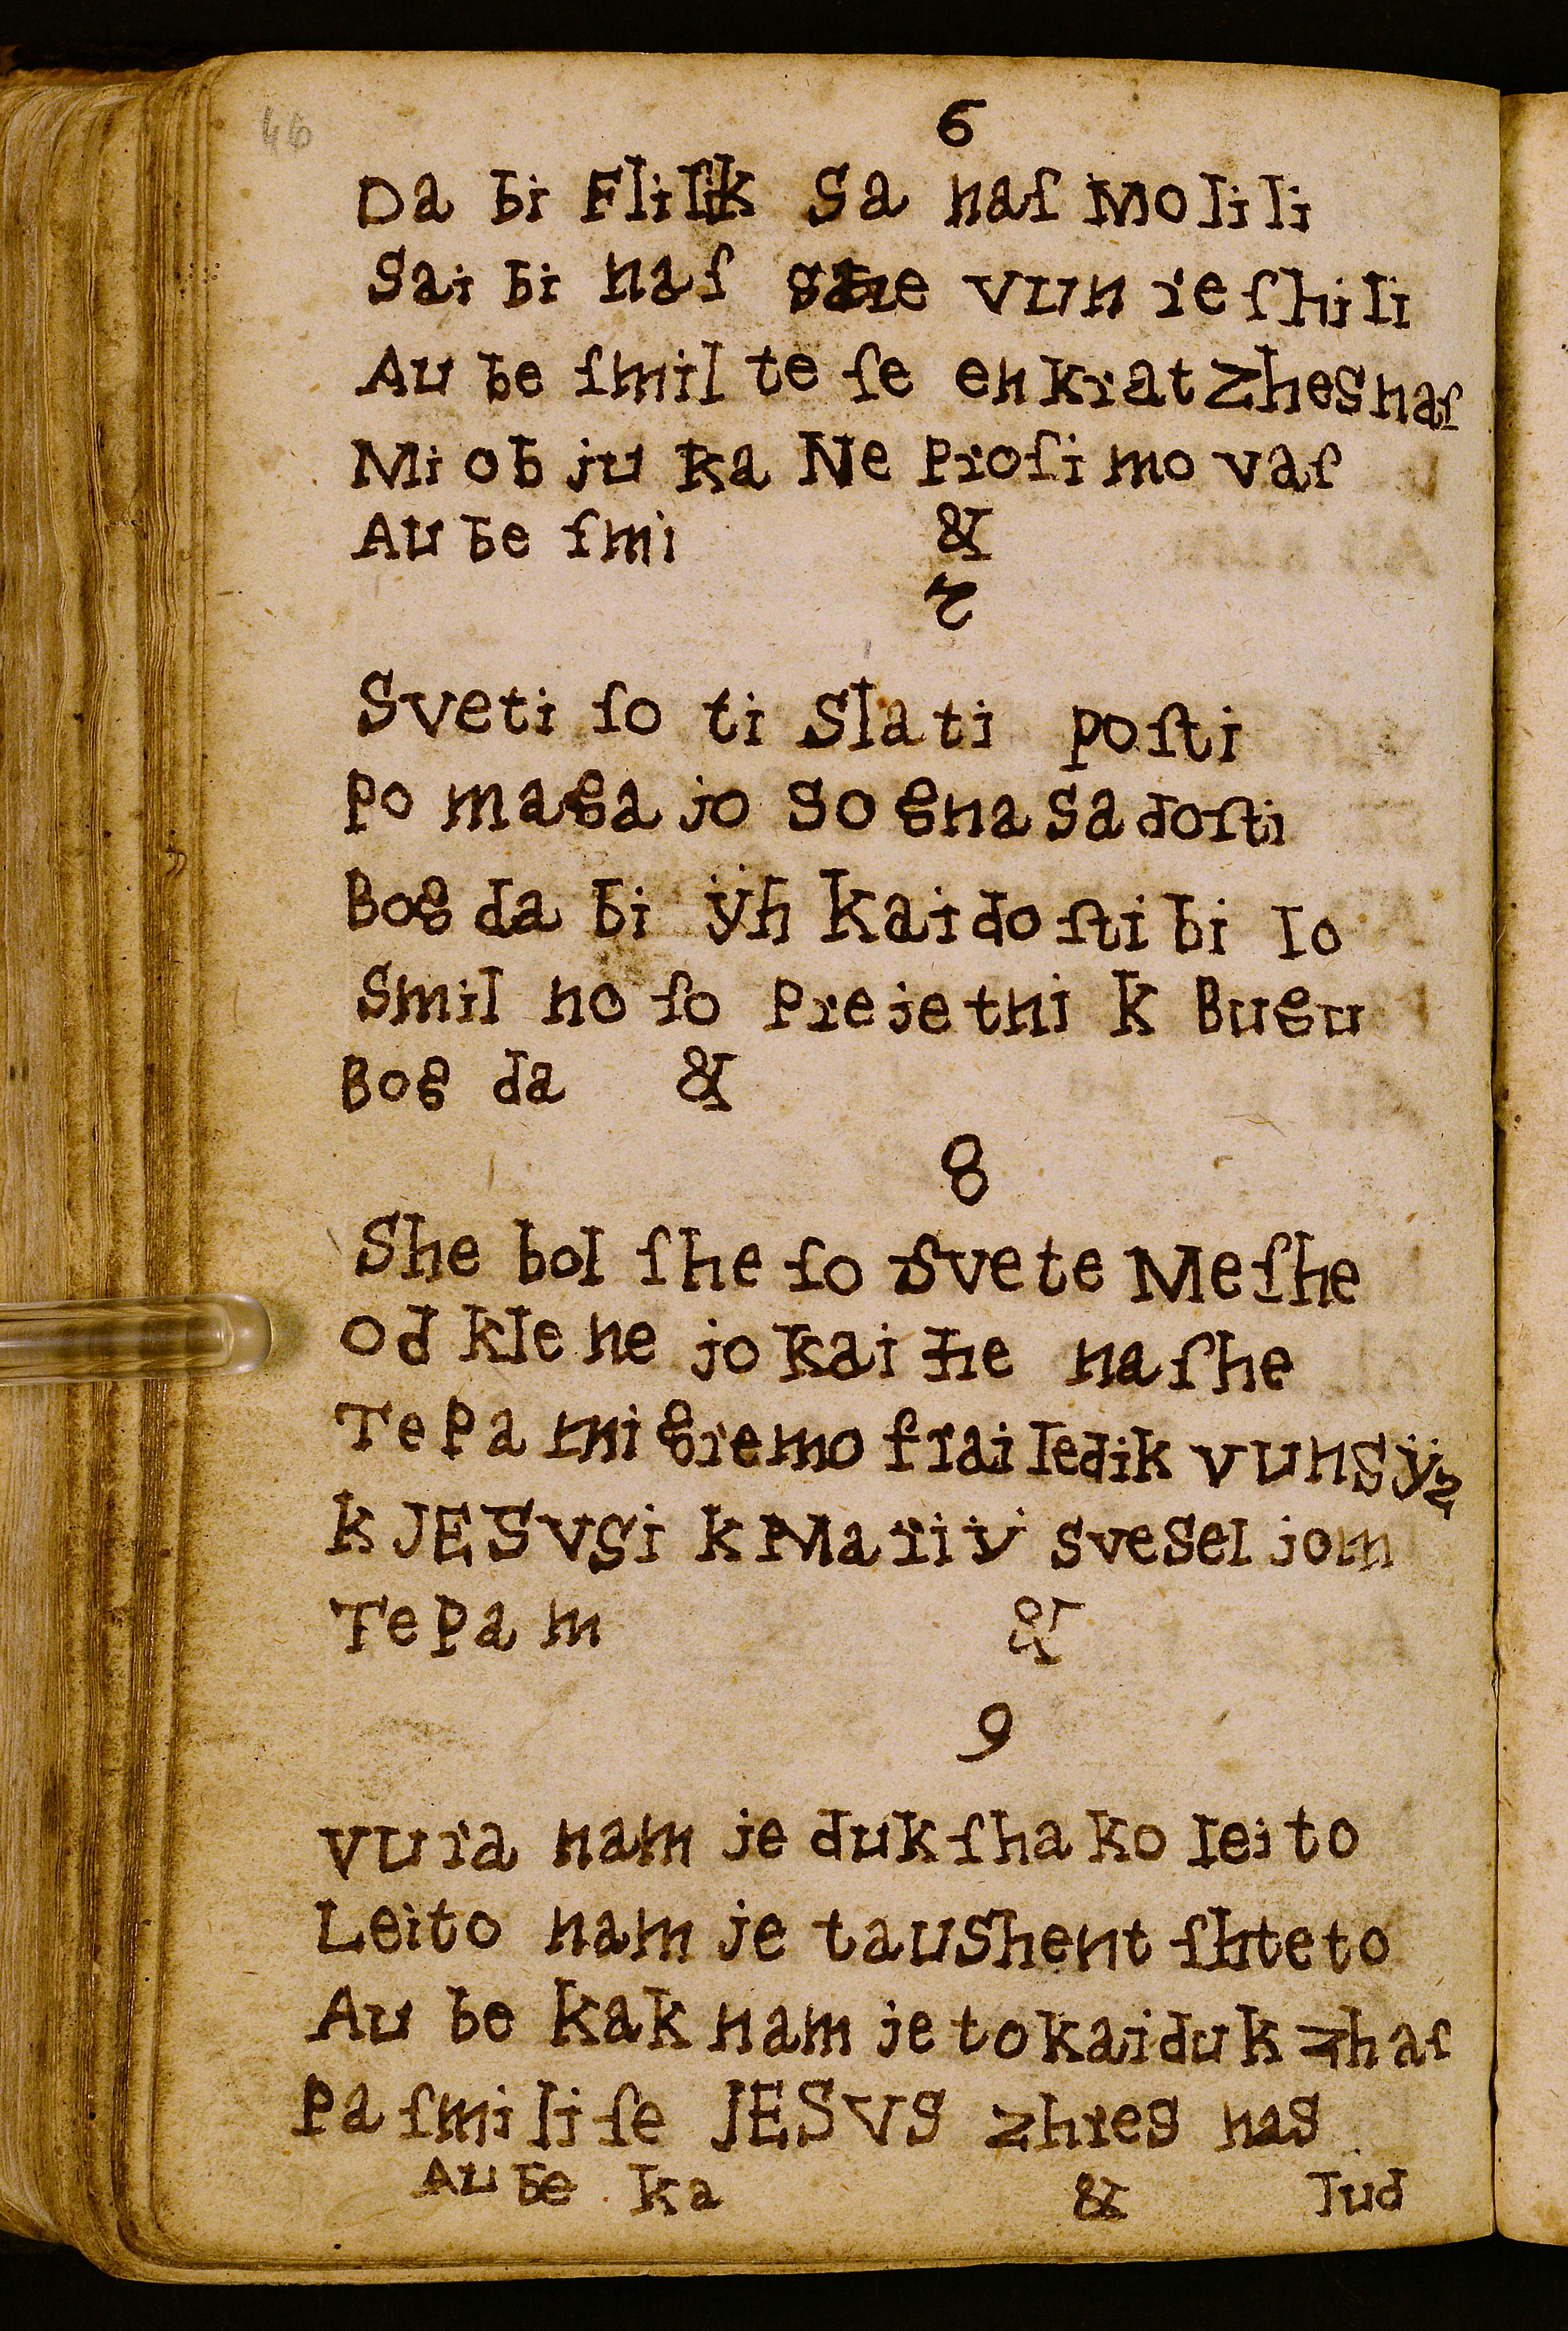 46
6
Da bi Fliſik Sa naſ Moli li
Sai bi naſ vun re ſhi li
Au be ſmil te ſe en krat Zhes naſ
Mi ob ju ka Ne Proſi mo vaſ
Au be ſmi &
7
Sveti ſo ti Sla ti poſti
Po maga jo So gna Sa doſti
Bog da bi ÿh Kai do ſti bi lo
Smil no ſo Preje tni k Bugu
Bog da &
8
She bol ſhe ſo Svete Me ſhe
od kle ne jo kai he na ſhe
Te Pa mi gremo frai ledik vuns ÿz
k JESVSi k Mariv sveSel jom
Te Pa m &
9
vura nam je duk ſha ko lei to
Leito nam je tauShent ſhte to
Au be Kak nam je to kai duk zhaſ
Pa ſmi li ſe JESVS zhres nas
Au be ka & lud